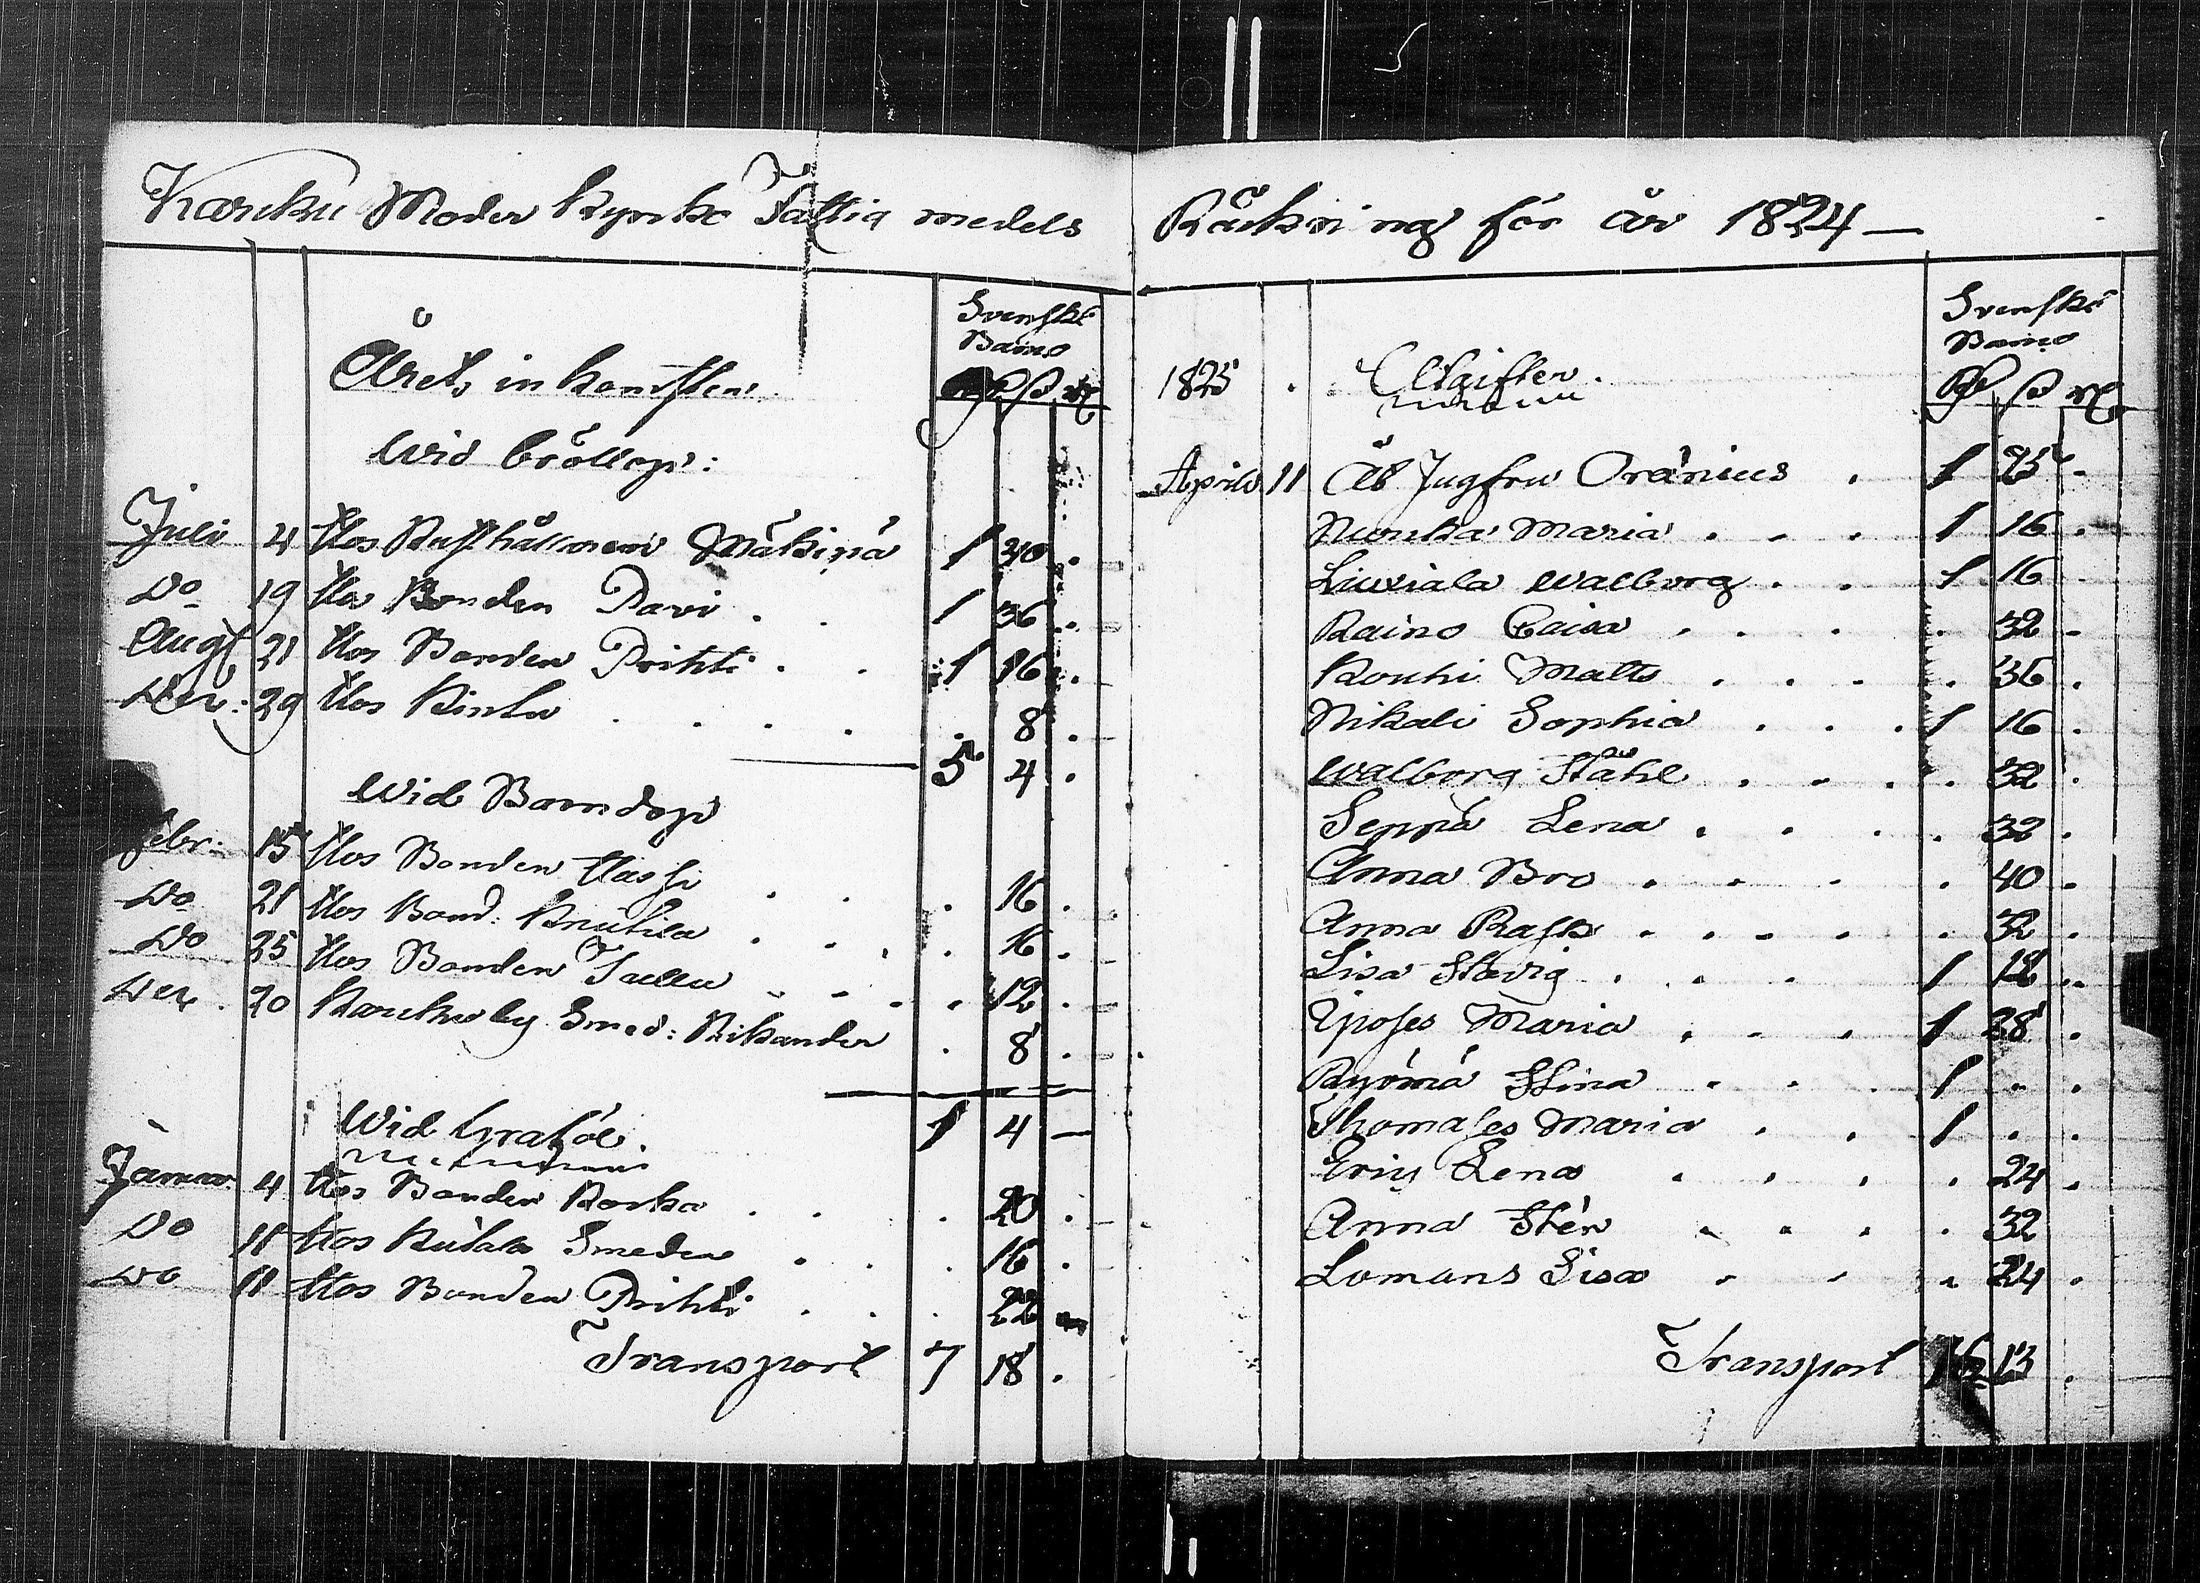 Karcku Moder kyrko Fattig medels
Årets inkomster
Svenske
Banco
Wid bröllop:
Juli 4 Hos Rusthållaren Mäkipä 1 40 .
Do 19 Hos Bonden Pavi . . 1 36 .
Aug 21 Hos Bonden Prihti . . 1 16 .
Dec: 29 Hos Kinta . . . . . 8 .
5 4 .
Wid Barndop
Febr: 15 Hos Bonden Hassi . . . . 16 .
Do 21 Hos Bond: Knutila . . . . 16 .
Do 25 Hos Bonden Jallu . . . . 12 .
Dec . 20 Karcku by Smed: Nikander . 8 .
1 4 —
Wid Graföl.
Januar. 4 Hos Bonden Korka . . . . 20 .
Do 11 Hos Kutala Smeden . . . 16 .
Do 11 Hos Bonden Prihti . . . 22
Transport 7 18 .
Räkning för år 1824 —
Svenske
Banco
1825 . Utgifter.
April 11 Åt Jugfru Oränius . 1 25 .
Nunka Maria . . . 1 16 .
Liuxiala Walborg . . 1 16 .
Raino Caisa . . . . 32 .
Kouhi Matts . . . . 36 .
Nikali Sophia . . . 1 16 .
Walborg Ståhl . . . . 32 .
Seppä Lena . . . . 32 .
Anna Bro . . . . 40 .
Anna Rask . . . . . 32 .
Lisa Stavig . . . 1 12 .
Yposes Maria . . . 1 28 .
Ryömä Stina . . . 1 . .
Thomases Maria . . 1 . .
Erix Lena . . . . 24 .
Anna Stén . . . . 32
Lomans Lisa . . . 24 .
Transport 16 13 .